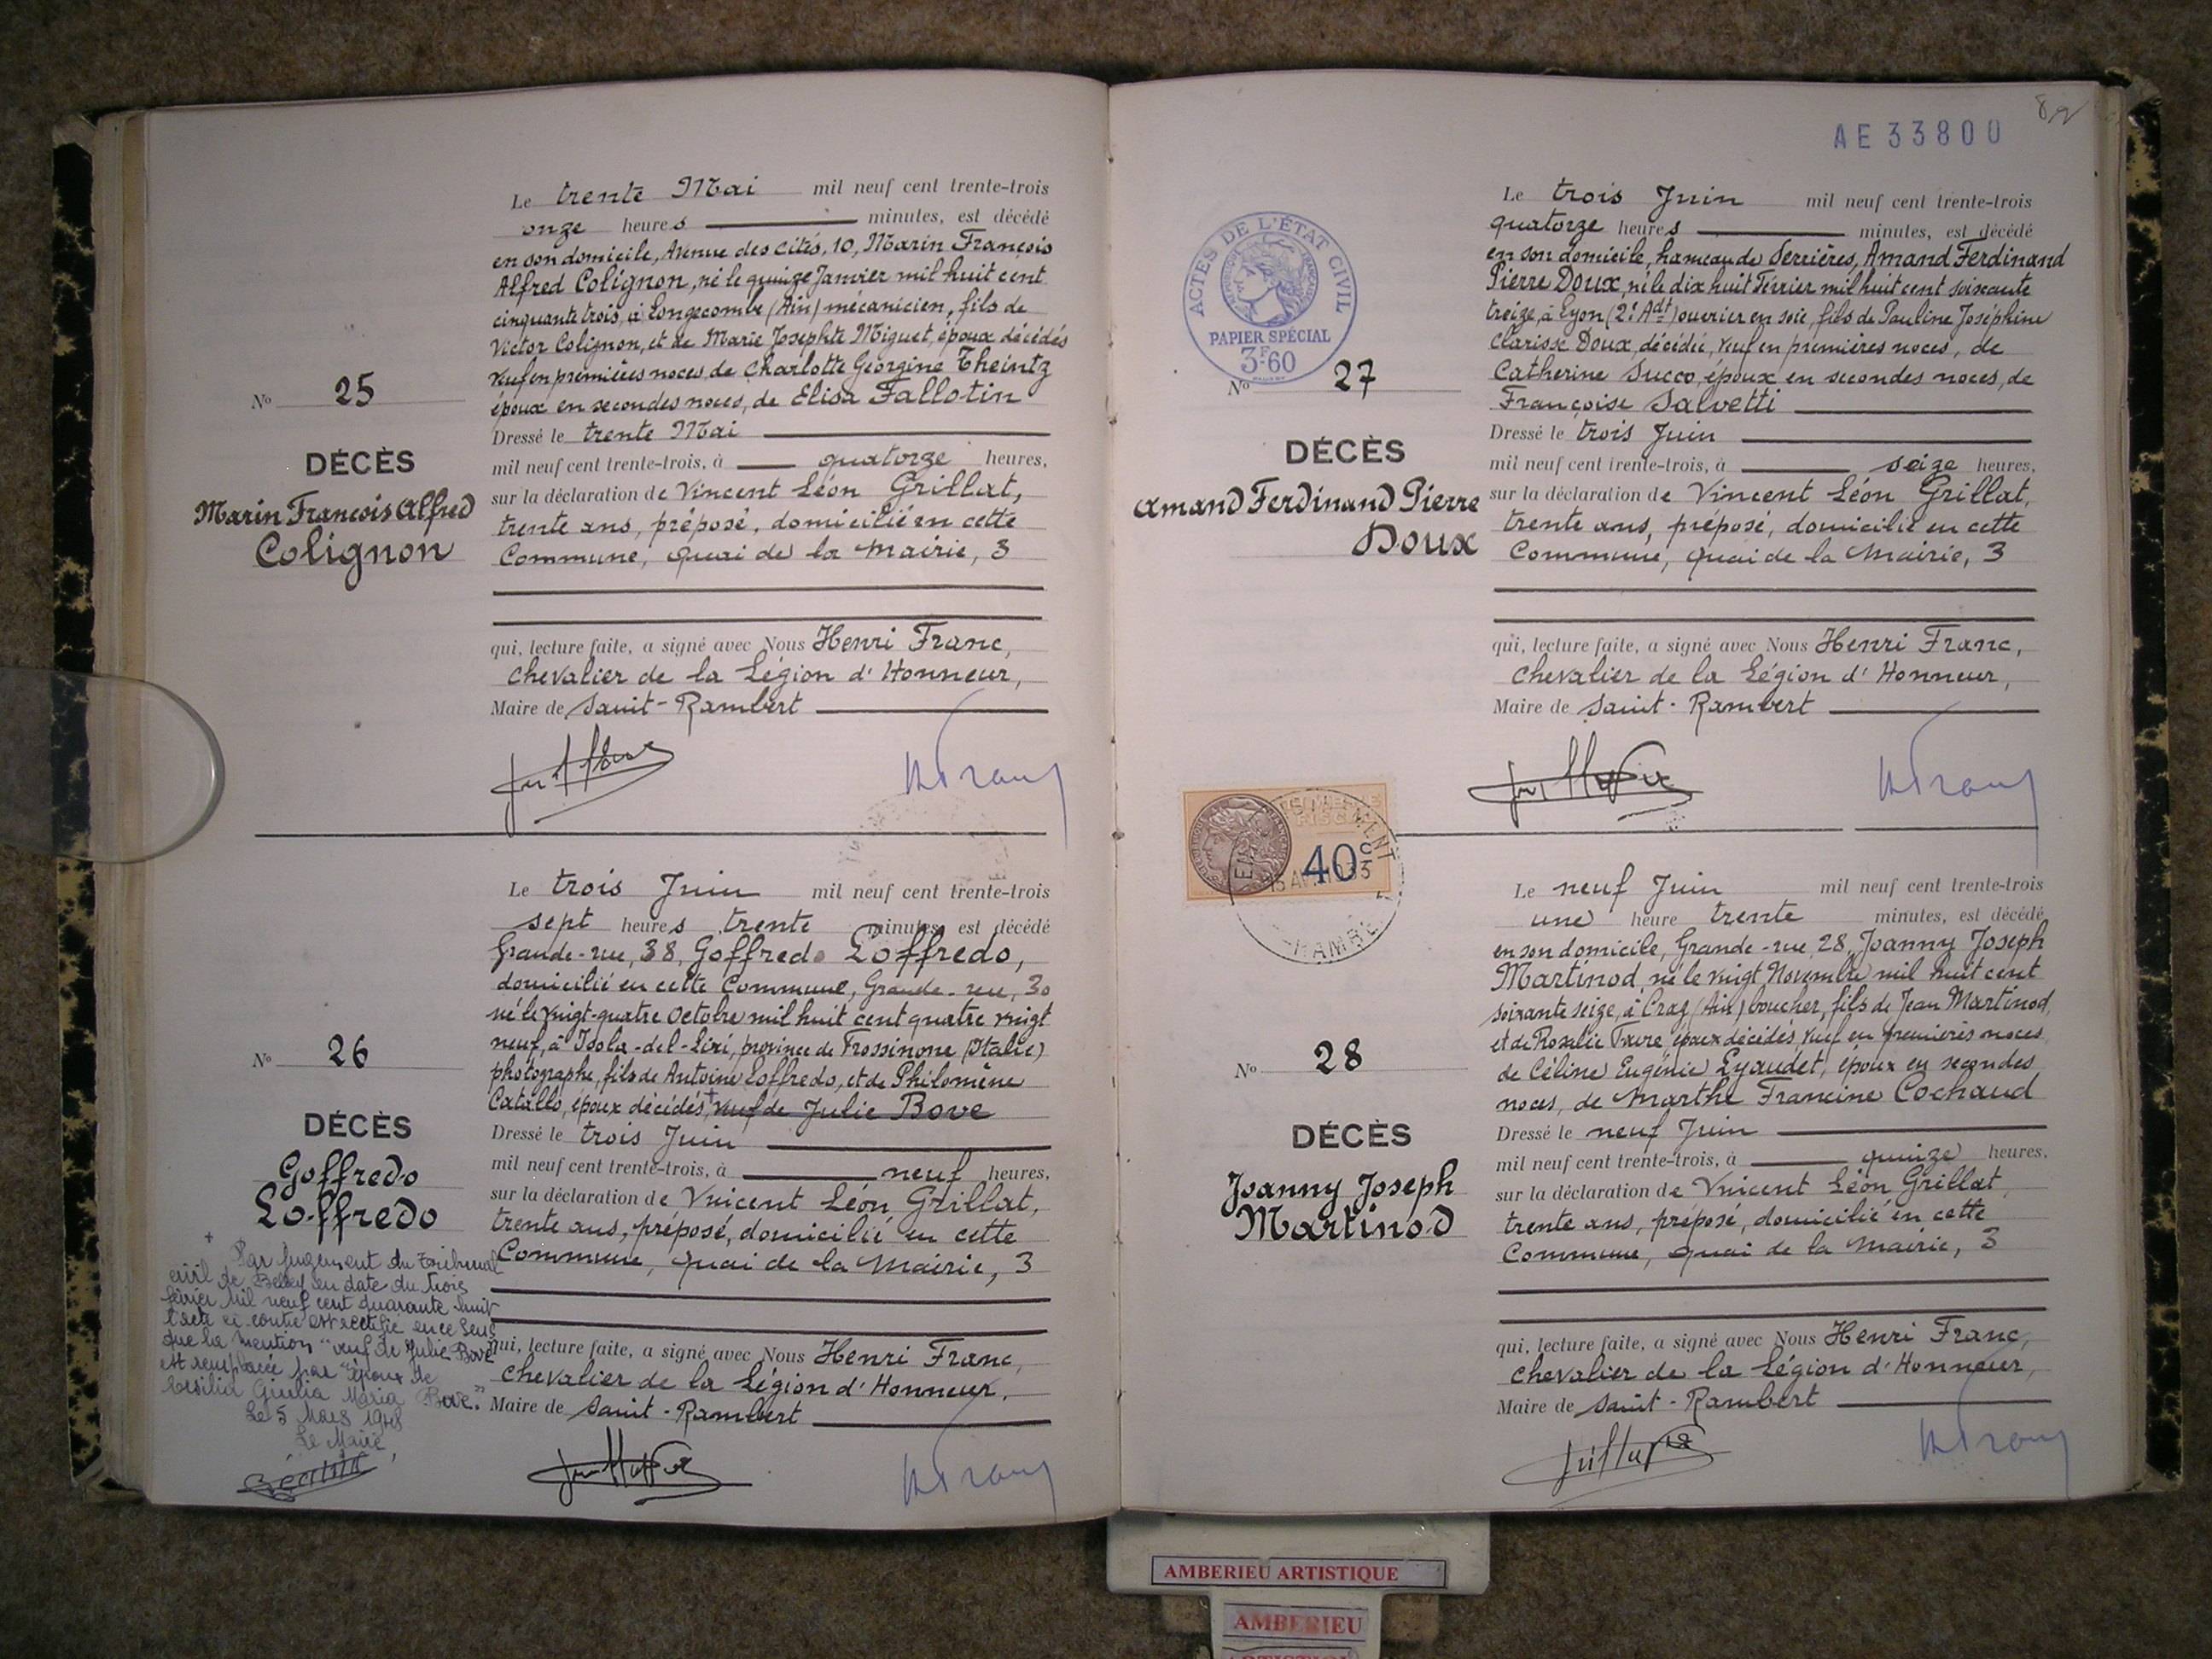 Le trente Mai mil neuf cent trente-trois
onze heures minutes, est décédé
en son domicile, Avenue des Cités, 10, Marin François
Alfred Colignon, né le quinze Janvier mil huit cent
cinquante trois, à Longecombe (Ain) mécanicien, fils de
Victor Colignon, et de Marie Josephte Miguet, époux décédés
veuf en premières noces, de Charlotte Georgine Theintz
époux en secondes noces, de Elisa Fallotin
N° 25
Dressé le trente Mai
DÉCÈS
mil neuf cent trente-trois, à quatorze heures,
Marin François Alfred
Colignon
sur la déclaration de Vincent Léon Grillat,
trente ans, préposé, domicilié en cette
Commune, quai de la Mairie, 3
qui, lecture faite, a signé avec Nous Henri Franc,
Chevalier de la Légion d'Honneur,
Maire de Saint-Rambert
HFranc
Le trois Juin mil neuf cent trente-trois
sept heures trente minutes, est décédé
Grande-rue, 38, Goffredo Loffredo,
domicilié en cette Commune, Grande-rue, 30
né le vingt-quatre Octobre mil huit cent quatre vingt
neuf, à Isola-del-Liri, province de Frossinone (Italie)
photographe, fils de Antoine Loffredo, et de Philomène
Catallo, époux décédés, + veuf de Julie Bove
N° 26
Dressé le trois Juin
DÉCÈS
mil neuf cent trente-trois, à neuf heures,
Goffredo
Loffredo
sur la déclaration de Vincent Léon Grillat,
trente ans, préposé, domicilié en cette
Commune, quai de la Mairie, 3
qui, lecture faite, a signé avec Nous Henri Franc,
Chevalier de la Légion d'Honneur,
Maire de Saint-Rambert
HFranc
+ Par jugement du tribunal
civil de Belley en date du trois
février mil neuf cent quarante huit
l'acte ci contre est rectifié en ce sens
que la mention "veuf de Julie Bove"
est remplacée par "époux de
Giulia Maria Bove."
Le 5 Mars 1948
Le Maire
8
AE33800
ACTES DE L'ÉTAT CIVIL
PAPIER SPÉCIAL
3F.60
Le trois Juin mil neuf cent trente-trois
quatorze heures minutes, est décédé
en son domicile, hameau de Serrières, Amand Ferdinand
Pierre Doux, né le dix huit Février mil huit cent soixante
treize, à Lyon (2e Adt) ouvrier en soie, fils de Pauline Joséphine
Clarisse Doux, décédée, veuf en premières noces, de
Catherine Succo, époux en secondes noces, de
Françoise Salvetti
N° 27
Dressé le trois Juin
DÉCÈS
mil neuf cent trente-trois, à seize heures,
Amand Ferdinand Pierre
Doux
sur la déclaration de Vincent Léon Grillat,
trente ans, préposé, domicilié en cette
Commune, quai de la Mairie, 3
qui, lecture faite, a signé avec Nous Henri Franc,
Chevalier de la Légion d'Honneur,
Maire de Saint-Rambert
HFranc
40c
Le neuf Juin mil neuf cent trente-trois
une heure trente minutes, est décédé
en son domicile, Grande-rue, 28, Joanny Joseph
Martinod, né le vingt Novembre mil huit cent
soixante seize, à Craz (Ain) boucher, fils de Jean Martinod,
et de Rosalie Favre époux décédés, veuf en premières noces
de Céline Eugénie Gyaudet, époux en secondes
noces, de Marthe Francine Cochaud
N° 28
Dressé le neuf Juin
DÉCÈS
mil neuf cent trente-trois, à quinze heures,
Joanny Joseph
Martinod
sur la déclaration de Vincent Léon Grillat,
trente ans, préposé, domicilié en cette
Commune, quai de la Mairie, 3
qui, lecture faite, a signé avec Nous Henri Franc,
Chevalier de la Légion d'Honneur,
Maire de Saint-Rambert
HFranc
AMBERIEU ARTISTIQUE
AMBERIEU